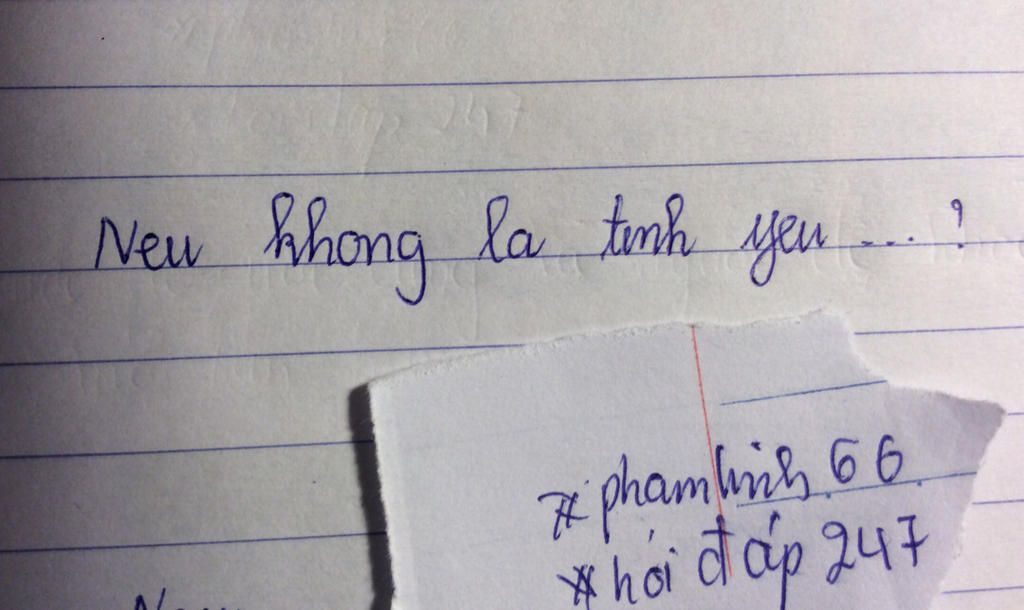 Neu khong la tinh yeu ... ?
# phamlinh.66.
# hỏi đáp 247